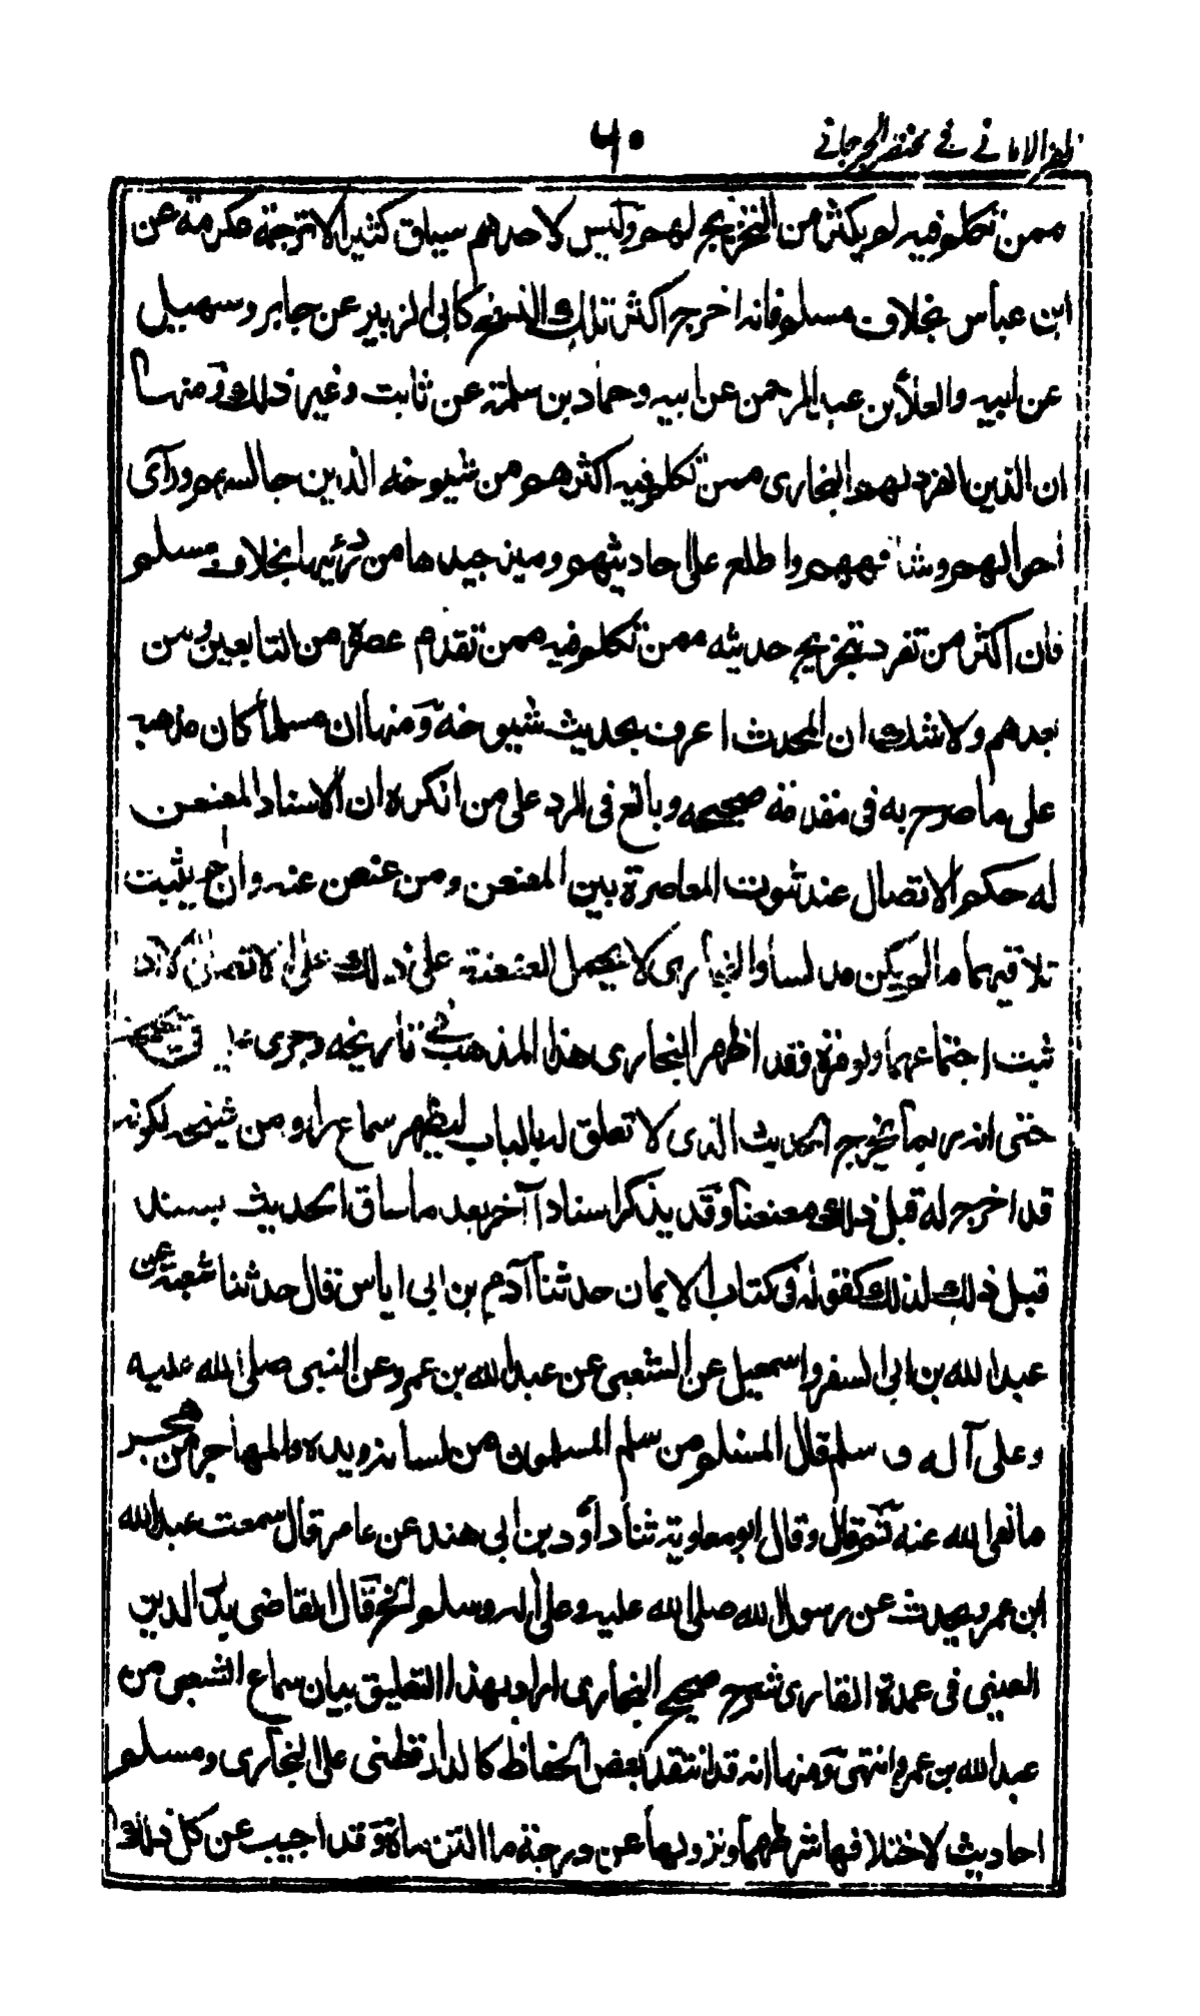 ظفر الامانی فی مختصر الجرجانی
۶۰
ممن تكلم فيه لم يكثر من التخريج لهم وليس لاحدهم سياق كثير الا ترجمة عكرمة عن
ابن عباس بخلاف مسلم فانه اخرج اكثر تلك النسخ كابی الزبير عن جابر وسهيل
عن ابيه والعلاء بن عبد الرحمن عن ابيه وحماد بن سلمة عن ثابت وغير ذلك ومنها
ان الذين انفرد بهم البخاری ممن تكلم فيه اكثرهم من شيوخه الذين جالسهم ورأى
احوالهم وشافههم واطلع علی احاديثهم وميز جيدها من رديها بخلاف مسلم
فان اكثر من تفرد بتخريج حديثه ممن تكلم فيه ممن تقدم عصره من التابعين ومن
بعدهم ولا شك ان المحدث اعرف بحديث شيوخه ومنها ان مسلما كان مذهبه
علی ما صرح به فی مقدمة صحيحه وبالغ فی الرد علی من انكره ان الاسناد المعنعن
له حكم الاتصال عند ثبوت المعاصرة بين المعنعن ومن عنعن عنه وان لم يثبت
تلاقيهما ما لم يكن مدلسا والبخاری لا يحمل العنعنة علی ذلك علی الاتصال الا اذا
ثبت اجتماعهما ولو مرة وقد اظهر البخاری هذا المذهب فی تاريخه وجری عليه فی صحيحه
حتی انه ربما يخرج الحديث الذی لا تعلق له بالباب ليظهر سماع راو من شيخه لكونه
قد اخرج له قبل ذلك معنعنا وقد يذكر اسنادا آخر بعد ما ساق الحديث بسند
قبل ذلك لذلك كقوله فی كتاب الايمان حدثنا آدم بن ابی اياس قال حدثنا شعبة عن
عبد الله بن ابی السفر واسمعيل عن الشعبی عن عبد الله بن عمرو عن النبی صلی الله عليه
وعلی آله وسلم قال المسلم من سلم المسلمون من لسانه ويده والمهاجر من هجر
ما نهی الله عنه ثم قال وقال ابو معاوية ثنا داؤد بن ابی هند عن عامر قال سمعت عبد الله
ابن عمرو يحدث عن رسول الله صلی الله عليه وعلی آله وسلم الخ قال القاضی بدر الدين
العينی فی عمدة القاری شرح صحيح البخاری اراد بهذا التعليق بيان سماع الشعبی من
عبد الله بن عمرو انتهی ومنها انه قد انتقد بعض الحفاظ كالدارقطنی علی البخاری ومسلم
احاديث لاختلاف فيها شرطهما ونزولهما عن درجة ما التزماه وقد اجيب عن كل ذلك